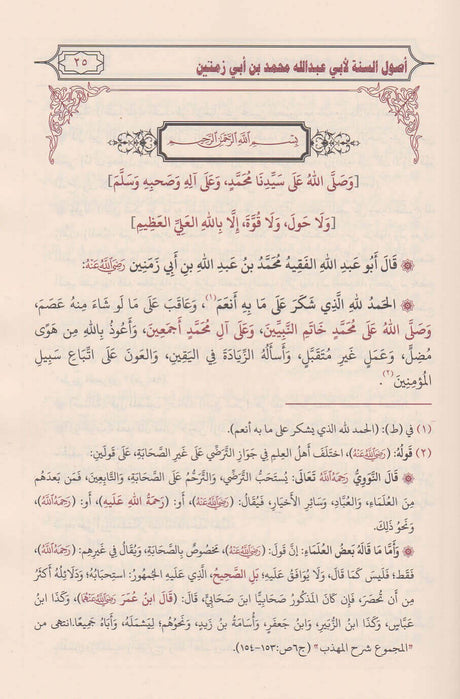 أصول السنة لأبي عبدالله محمد بن أبي زمنين
٢٥
بِسْمِ اللهِ الرَّحْمٰنِ الرَّحِيمِ
[وَصَلَّى اللهُ عَلَى سَيِّدِنَا مُحَمَّدٍ، وَعَلَى آلِهِ وَصَحبِهِ وَسَلَّمَ]
[وَلَا حَولَ، وَلَا قُوَّةَ، إِلَّا بِاللهِ العَلِيِّ العَظِيمِ]
قَالَ أَبُو عَبدِ اللهِ الفَقِيهُ مُحَمَّدُ بنُ عَبدِ اللهِ بنِ أَبِي زَمَنِين رَضِيَ اللهُ عَنْهُ:
الحَمدُ لِلَّهِ الَّذِي شَكَرَ عَلَى مَا بِهِ أَنعَمَ(١)، وَعَاقَبَ عَلَى مَا لَو شَاءَ مِنهُ عَصَمَ،
وَصَلَّى اللهُ عَلَى مُحَمَّدٍ خَاتِمِ النَّبِيِّينَ، وَعَلَى آلِ مُحَمَّدٍ أَجمَعِينَ، وَأَعُوذُ بِاللهِ مِن هَوًى
مُضِلٍّ، وَعَمَلٍ غَيرِ مُتَقَبَّلٍ، وَأَسأَلُهُ الزِّيَادَةَ فِي اليَقِينِ، وَالعَونَ عَلَى اتِّبَاعِ سَبِيلِ
المُؤمِنِينَ(٢).
(١) في (ط): (الحمد لله الذي يشكر على ما به أنعم).
(٢) قَولُهُ: (رَضِيَ اللهُ عَنْهُ)، اختَلَفَ أَهلُ العِلمِ فِي جَوَازِ التَّرَضِّي عَلَى غَيرِ الصَّحَابَةِ، عَلَى قَولَينِ:
قَالَ النَّوَوِيُّ رَحِمَهُ اللهُ تَعَالَى: يُستَحَبُّ التَّرَضِّي، وَالتَّرَحُّمُ عَلَى الصَّحَابَةِ، وَالتَّابِعِينَ، فَمَن بَعدَهُم
مِنَ العُلَمَاءِ، وَالعُبَّادِ، وَسَائِرِ الأَخيَارِ، فَيُقَالُ: (رَضِيَ اللهُ عَنْهُ)، أَو: (رَحمَةُ اللهِ عَلَيهِ)، أَو: (رَحِمَهُ اللهُ)،
وَنَحوُ ذَلِكَ.
وَأَمَّا مَا قَالَهُ بَعضُ العُلَمَاءِ: إِنَّ قَولَ: (رَضِيَ اللهُ عَنْهُ)، مَخصُوصٌ بِالصَّحَابَةِ، وَيُقَالُ فِي غَيرِهِم: (رَحِمَهُ اللهُ)،
فَقَط؛ فَلَيسَ كَمَا قَالَ، وَلَا يُوَافَقُ عَلَيهِ؛ بَلِ الصَّحِيحُ؛ الَّذِي عَلَيهِ الجُمهُورُ: استِحبَابُهُ؛ وَدَلَائِلُهُ أَكثَرُ
مِن أَن تُحصَرَ، فَإِن كَانَ المَذكُورُ صَحَابِيًّا ابنَ صَحَابِيٍّ، قَالَ: (قَالَ ابنُ عُمَرَ رَضِيَ اللهُ عَنْهُمَا)، وَكَذَا ابنُ
عَبَّاسٍ، وَكَذَا ابنُ الزُّبَيرِ، وَابنُ جَعفَرٍ، وَأُسَامَةُ بنُ زَيدٍ، وَنَحوُهُم؛ لِيَشمَلَهُ، وَأَبَاهُ جَمِيعًا.انتهى من
"المجموع شرح المهذب" (ج٦ص:١٥٣-١٥٤).